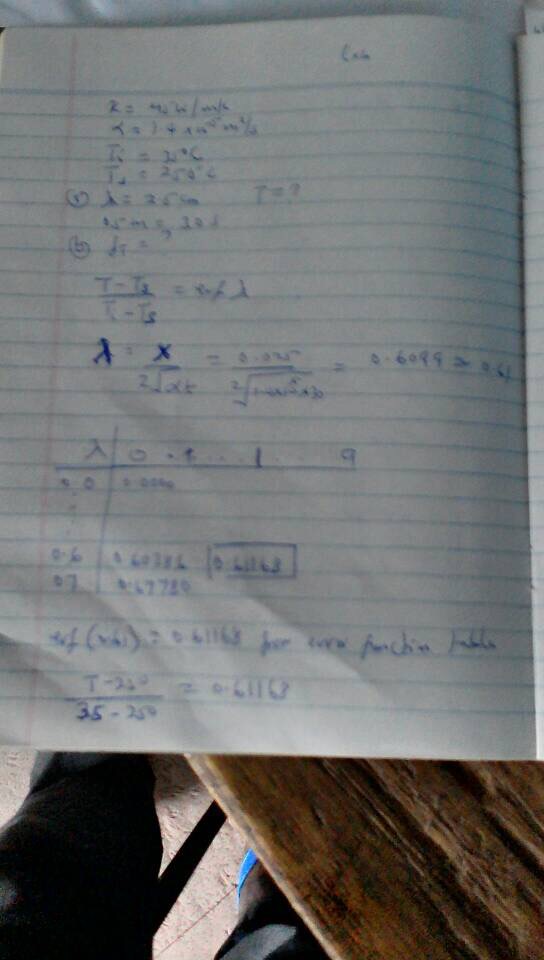 K = 45 W/m/k
α = 1.4 x10⁻⁵ m²/s
Ti = 35°C
Ts = 250°C
(a) λ = 2.5 cm T = ?
0.5m = 30s
(b)
T - Ts / Ti - Ts = erf λ
λ = x / 2√αt = 0.025 / 2√1.4x10⁻⁵x30 = 0.6099 ≈ 0.61
λ 0 . 1 ... 1 ... 9
0.0 0.0000
0.6 0.60386 0.61168
0.7 0.67780
erf (0.61) = 0.61168 from error function table
T - 250 / 35 - 250 = 0.61168